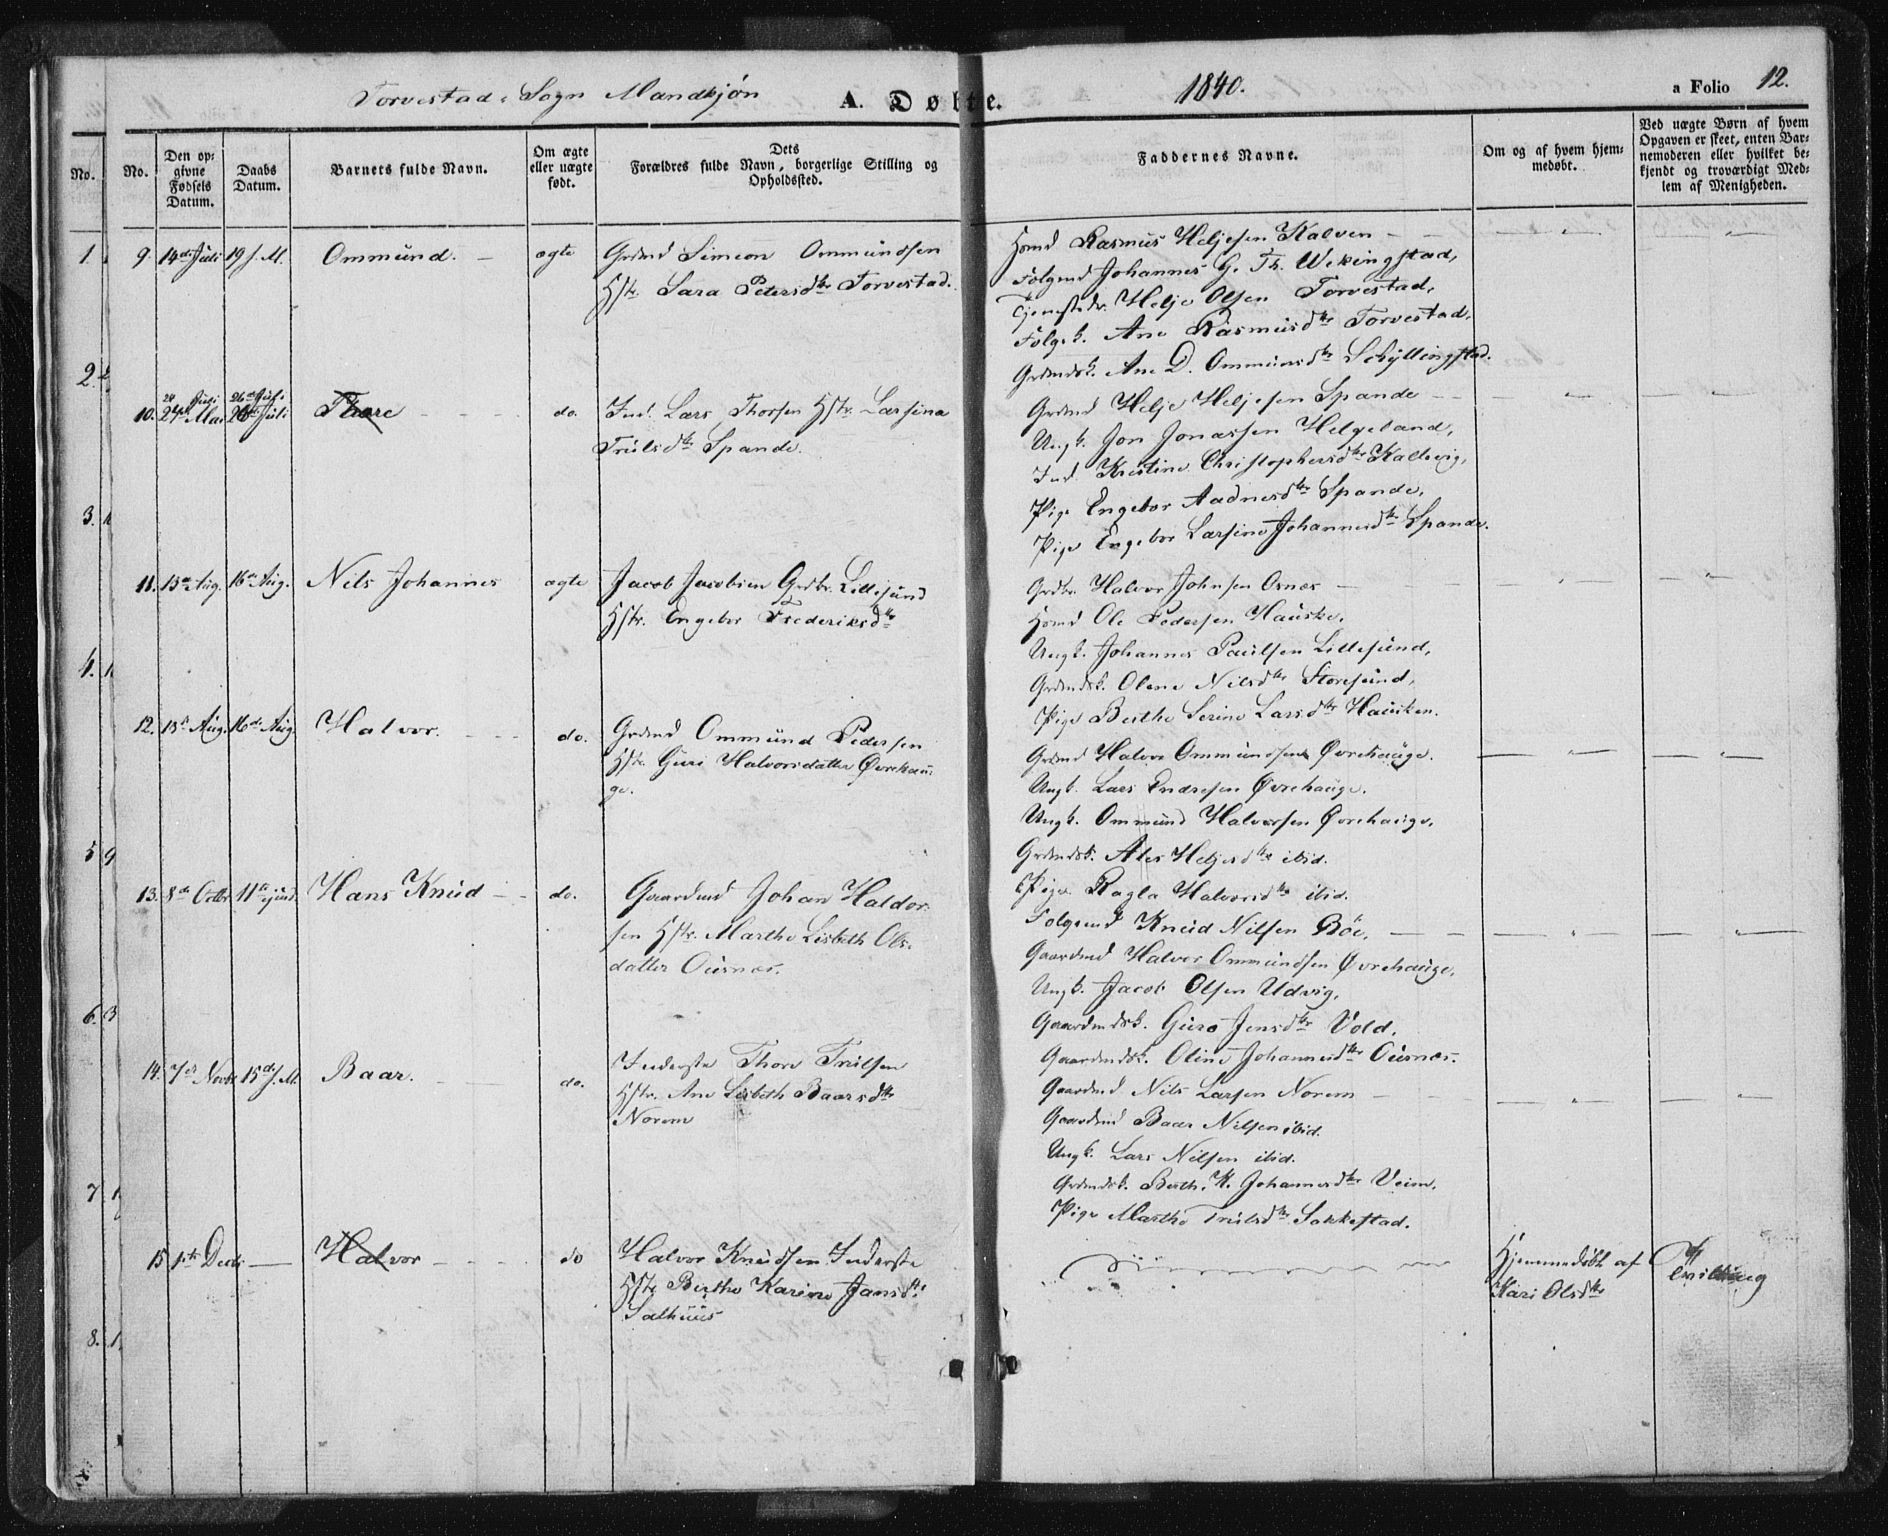 Torvestad Sogn Mandkjøn A. Døbte. 1840. a Folio 12.
No.
No.
Den opgivne Fødsels Datum.
Daabs Datum.
Barnets fulde Navn.
Om ægte eller uægte født.
Dets Forældres fulde Navn, borgerlige Stilling og Opholdssted.
Faddernes Navne.
Om og af hvem hjemmedøbt.
Ved uægte Børn af hvem Opgaven er skeet, enten Barnemoderen eller hvilket bekjendt og troværdigt Medlem af Menigheden.
1.
9. 14de Juli 19 s. M. Ommund. ægte Grdmd Simeon Ommundsen
Hstr. Sara Petersdtr Torvestad.
Hsmd Rasmus Heljesen Kalven
Folgemd Johannes G. Th. Wikingstad,
Tjenestedr. Helje Olsen Torvestad,
Folgek. Ane Rasmusdtr Torvestad,
Grdmdsk. Ane D. Ommundsdtr Schyllingstad.
2.
24 Juli 26de Juli
10. 24de Mai 26de Juli Thore do. Ind. Lars Thorsen Hstr. Larsina
Trulsdtr Spande.
Grdmd Helje Heljesen Spande
Ungk. Jon Jonassen Helgeland,
Ind. Kristine Christophersdtr Kallevig,
Pige Engebor Aadnesdtr Spande,
Pige Engebor Larsine Johannesdtr Spande.
3.
11. 13de Aug. 16de Aug. Nils Johannes ægte Jacob Jacobsen Grdbr. Lillesund
Hstr. Engebor Frederiksdtr
Grdbr. Halvor Johnsen Osnes
Hsmd Ole Pedersen Hauske,
Ungk. Johannes Paulsen Lillesund,
Grdmdsk. Olene Nilsdtr Storesund,
Pige Berthe Serine Larsdtr Hausken.
4.
12. 13de Aug. 16de Aug. Halvor. do. Grdmd Ommund Pedersen
Hstr. Guri Halvorsdatter Øvrehau-
ge.
Grdmd Halvor Ommundsen Øvrehauge.
Ungk. Lars Endresen Øvrehauge.
Ungk. Ommund Halvorsen Øvrehauge,
Grdmdsk. Ales Heljesdtr ibid.
Pige Ragla Halvorsdtr ibid.
5 9
13. 8de Octbr 11te ejusd. Hans Knud do. Gaardmd Johan Haldor-
sen Hstr. Marthe Lisbeth Ols-
datter Ousnes.
Folgemd Knud Nilsen Bøe,
Gaardmd Halvor Ommundsen Øvrehauge,
Ungk. Jacob Olsen Udvig,
Gaardmdsk. Guro Jensdtr Vold,
Gaardmdsk. Oline Johannesdtr Ousnes.
6. 3
14. 7de Novbr 15de s. M. Baar. do. Inderste Thore Trulsen
Hstr. Ane Lisbeth Baarsdtr
Norem
Gaardmd Nils Larsen Norem
Gaardmd Baar Nilsen ibid.
Ungk. Lars Nilsen ibid.
Grdmdsk. Berth. K. Johannesdtr Veim,
Pige Marthe Trulsdtr Sakkestad.
7
15 1ste Decbr Halvor do Halvor Knudsen Inderste
Hstr. Berthe Karine Jansdtr
Salhuus
Hjemmedøbt af
Kari Olsdtr
Tvilling
8.